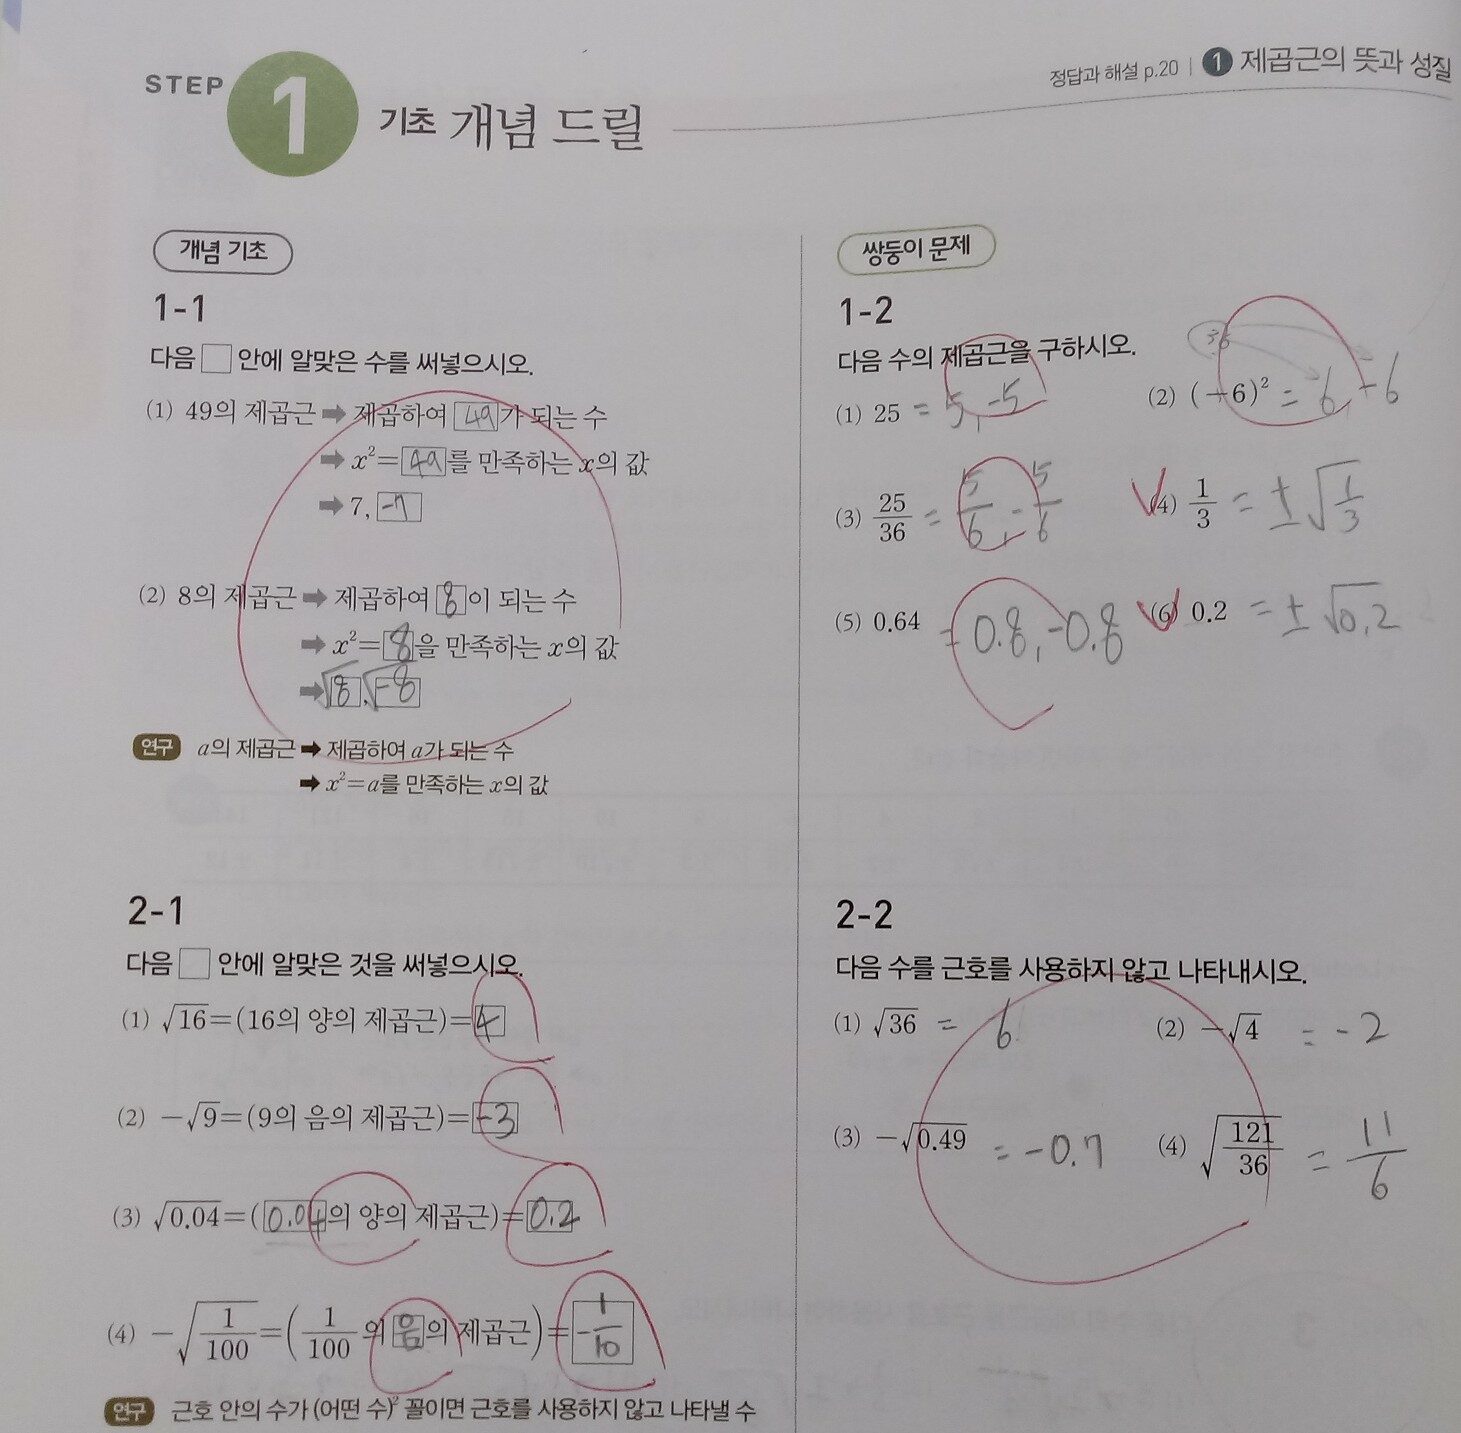 STEP 1 기초 개념 드릴
정답과 해설 p.20 | 1 제곱근의 뜻과 성질
개념 기초
1-1
다음 □ 안에 알맞은 수를 써넣으시오.
(1) 49의 제곱근 ➡ 제곱하여 49가 되는 수
➡ x²=49를 만족하는 x의 값
➡ 7, -7
(2) 8의 제곱근 ➡ 제곱하여 8이 되는 수
➡ x²=8을 만족하는 x의 값
➡ √8, √-8
연구 a의 제곱근 ➡ 제곱하여 a가 되는 수
➡ x²=a를 만족하는 x의 값
쌍둥이 문제
1-2
다음 수의 제곱근을 구하시오.
36
(1) 25 = 5, -5
(2) (-6)² = 6, -6
(3) 25/36 = 5/6, -5/6
(4) 1/3 = ±√1/3
(5) 0.64 = 0.8, -0.8
(6) 0.2 = ±√0.2
2-1
다음 □ 안에 알맞은 것을 써넣으시오.
(1) √16=(16의 양의 제곱근)=4
(2) -√9=(9의 음의 제곱근)=-3
(3) √0.04=(0.04의 양의 제곱근)=0.2
(4) -√1/100=(1/100의 음의 제곱근)=-1/10
연구 근호 안의 수가 (어떤 수)² 꼴이면 근호를 사용하지 않고 나타낼 수
2-2
다음 수를 근호를 사용하지 않고 나타내시오.
(1) √36 = 6
(2) -√4 = -2
(3) -√0.49 = -0.7
(4) √121/36 = 11/6